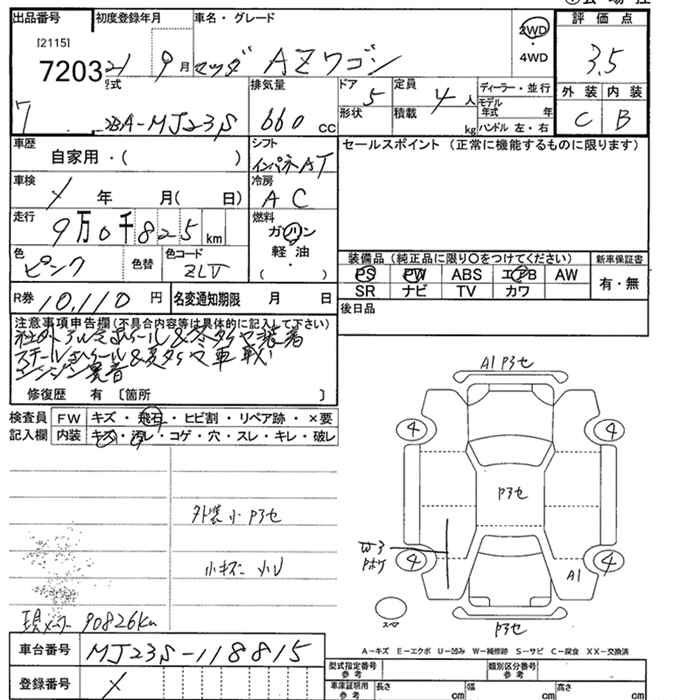 出品番号
初度登録年月
車名・グレード
評価点
[2115]
7203
21 9月
マツダ AZワゴン
2WD
・
4WD
3.5
型式
排気量
ドア
定員
ディーラー・並行
モデル
年式 年
外装
内装
7
DBA-MJ23S
660 cc
5
形状
4人
積載 kg
ハンドル 左・右
C
B
車歴
自家用・( )
シフト
インパネAT
セールスポイント (正常に機能するものに限ります)
車検
X 年 月( 日)
冷房
AC
走行
9万0千825km
燃料
ガソリン
軽・油
・
( )
色
ピンク
色替
色コード
ZLV
装備品 (純正品に限り○をつけてください)
新車保証書
PS PW ABS エアB AW
SR ナビ TV カワ
有・無
R券 10,110 円
名変通知期限 月 日
後日品
注意事項申告欄 (不具合内容等は具体的に記入して下さい)
社外アルミホイール&冬タイヤ装着
スチールホイール&夏タイヤ車載
修復歴 有 〔箇所 〕
検査員
記入欄
FW キズ・飛石・ヒビ割・リペア跡・×要
内装 キズ・汚レ・コゲ・穴・スレ・キレ・破レ
外装小P3セ
小キズ 小U
現メーター 90826km
A1 P3セ
4
4
P3セ
W3
Pボケ
4
4
A1
スペア
P3セ
A-キズ E-エクボ U-凹み W-補修跡 S-サビ C-腐食 XX-交換済
車台番号 MJ23S-118815
登録番号 X
型式指定番号
参考
類別区分番号
参考
車庫証明用
参考
長さ cm
幅 cm
高さ cm